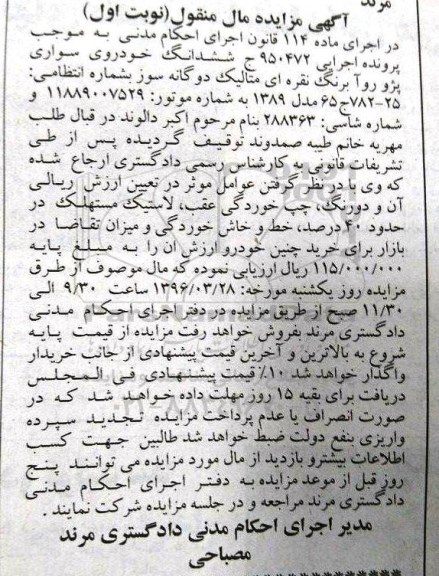 مرند
آگهی مزایده مال منقول(نوبت اول)
در اجرای ماده ۱۱۴ قانون اجرای احکام مدنی به موجب
پرونده اجرایی ۹۵۰۴۷۲ ج ششدانگ خودروی سواری
پژو روآ برنگ نقره ای متالیک دوگانه سوز بشماره انتظامی:
۲۵-۷۸۲ج۶۵ مدل ۱۳۸۹ به شماره موتور: ۱۱۸۸۹۰۰۷۵۲۹ و
شماره شاسی: ۲۸۸۳۶۳ بنام مرحوم اکبر دالوند در قبال طلب
مهریه خانم طیبه صمدوند توقیف گردیده پس از طی
تشریفات قانونی به کارشناس رسمی دادگستری ارجاع شده
که وی با در نظر گرفتن عوامل موثر در تعیین ارزش ریالی
آن و دورنگ، چپ خوردگی عقب، لاستیک مستهلک در
حدود ۴۰ درصد، خط و خاش خوردگی و میزان تقاضا در
بازار برای خرید چنین خودرو ارزش ان را به مبلغ پایه
۱۱۵/۰۰۰/۰۰۰ ریال ارزیابی نموده که مال موصوف از طرق
مزایده روز یکشنبه مورخه: ۱۳۹۶/۰۳/۲۸ ساعت ۹/۳۰ الی
۱۱/۳۰ صبح از طریق مزایده در دفتر اجرای احکام مدنی
دادگستری مرند بفروش خواهد رفت مزایده از قیمت پایه
شروع به بالاترین و آخرین قیمت پیشنهادی از جانب خریدار
واگذار خواهد شد ۱۰٪ قیمت پیشنهادی فی المجلس
دریافت برای بقیه ۱۵ روز مهلت داده خواهد شد که در
صورت انصراف یا عدم پرداخت مزایده تجدید سپرده
واریزی بنفع دولت ضبط خواهد شد طالبین جهت کسب
اطلاعات بیشترو بازدید از مال مورد مزایده می توانند پنج
روز قبل از موعد مزایده به دفتر اجرای احکام مدنی
دادگستری مرند مراجعه و در جلسه مزایده شرکت نمایند .
مدیر اجرای احکام مدنی دادگستری مرند
مصباحی